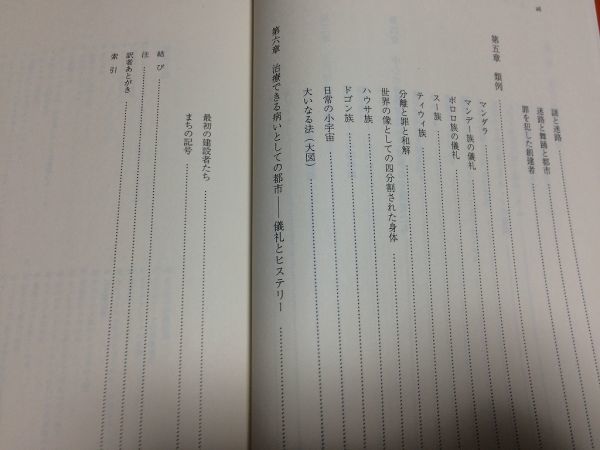 謎と迷路
迷路と舞踊と都市
罪を犯した創建者
第五章　類例
マンダラ
マンデー族の儀礼
ボロロ族の儀礼
スー族
ティウィ族
分離と罪と和解
世界の像としての四分割された身体
ハウサ族
ドゴン族
日常の小宇宙
大いなる法（大図）
第六章　治療できる病いとしての都市――儀礼とヒステリー
最初の建設者たち
まちの記号
結び
注
訳者あとがき
索引